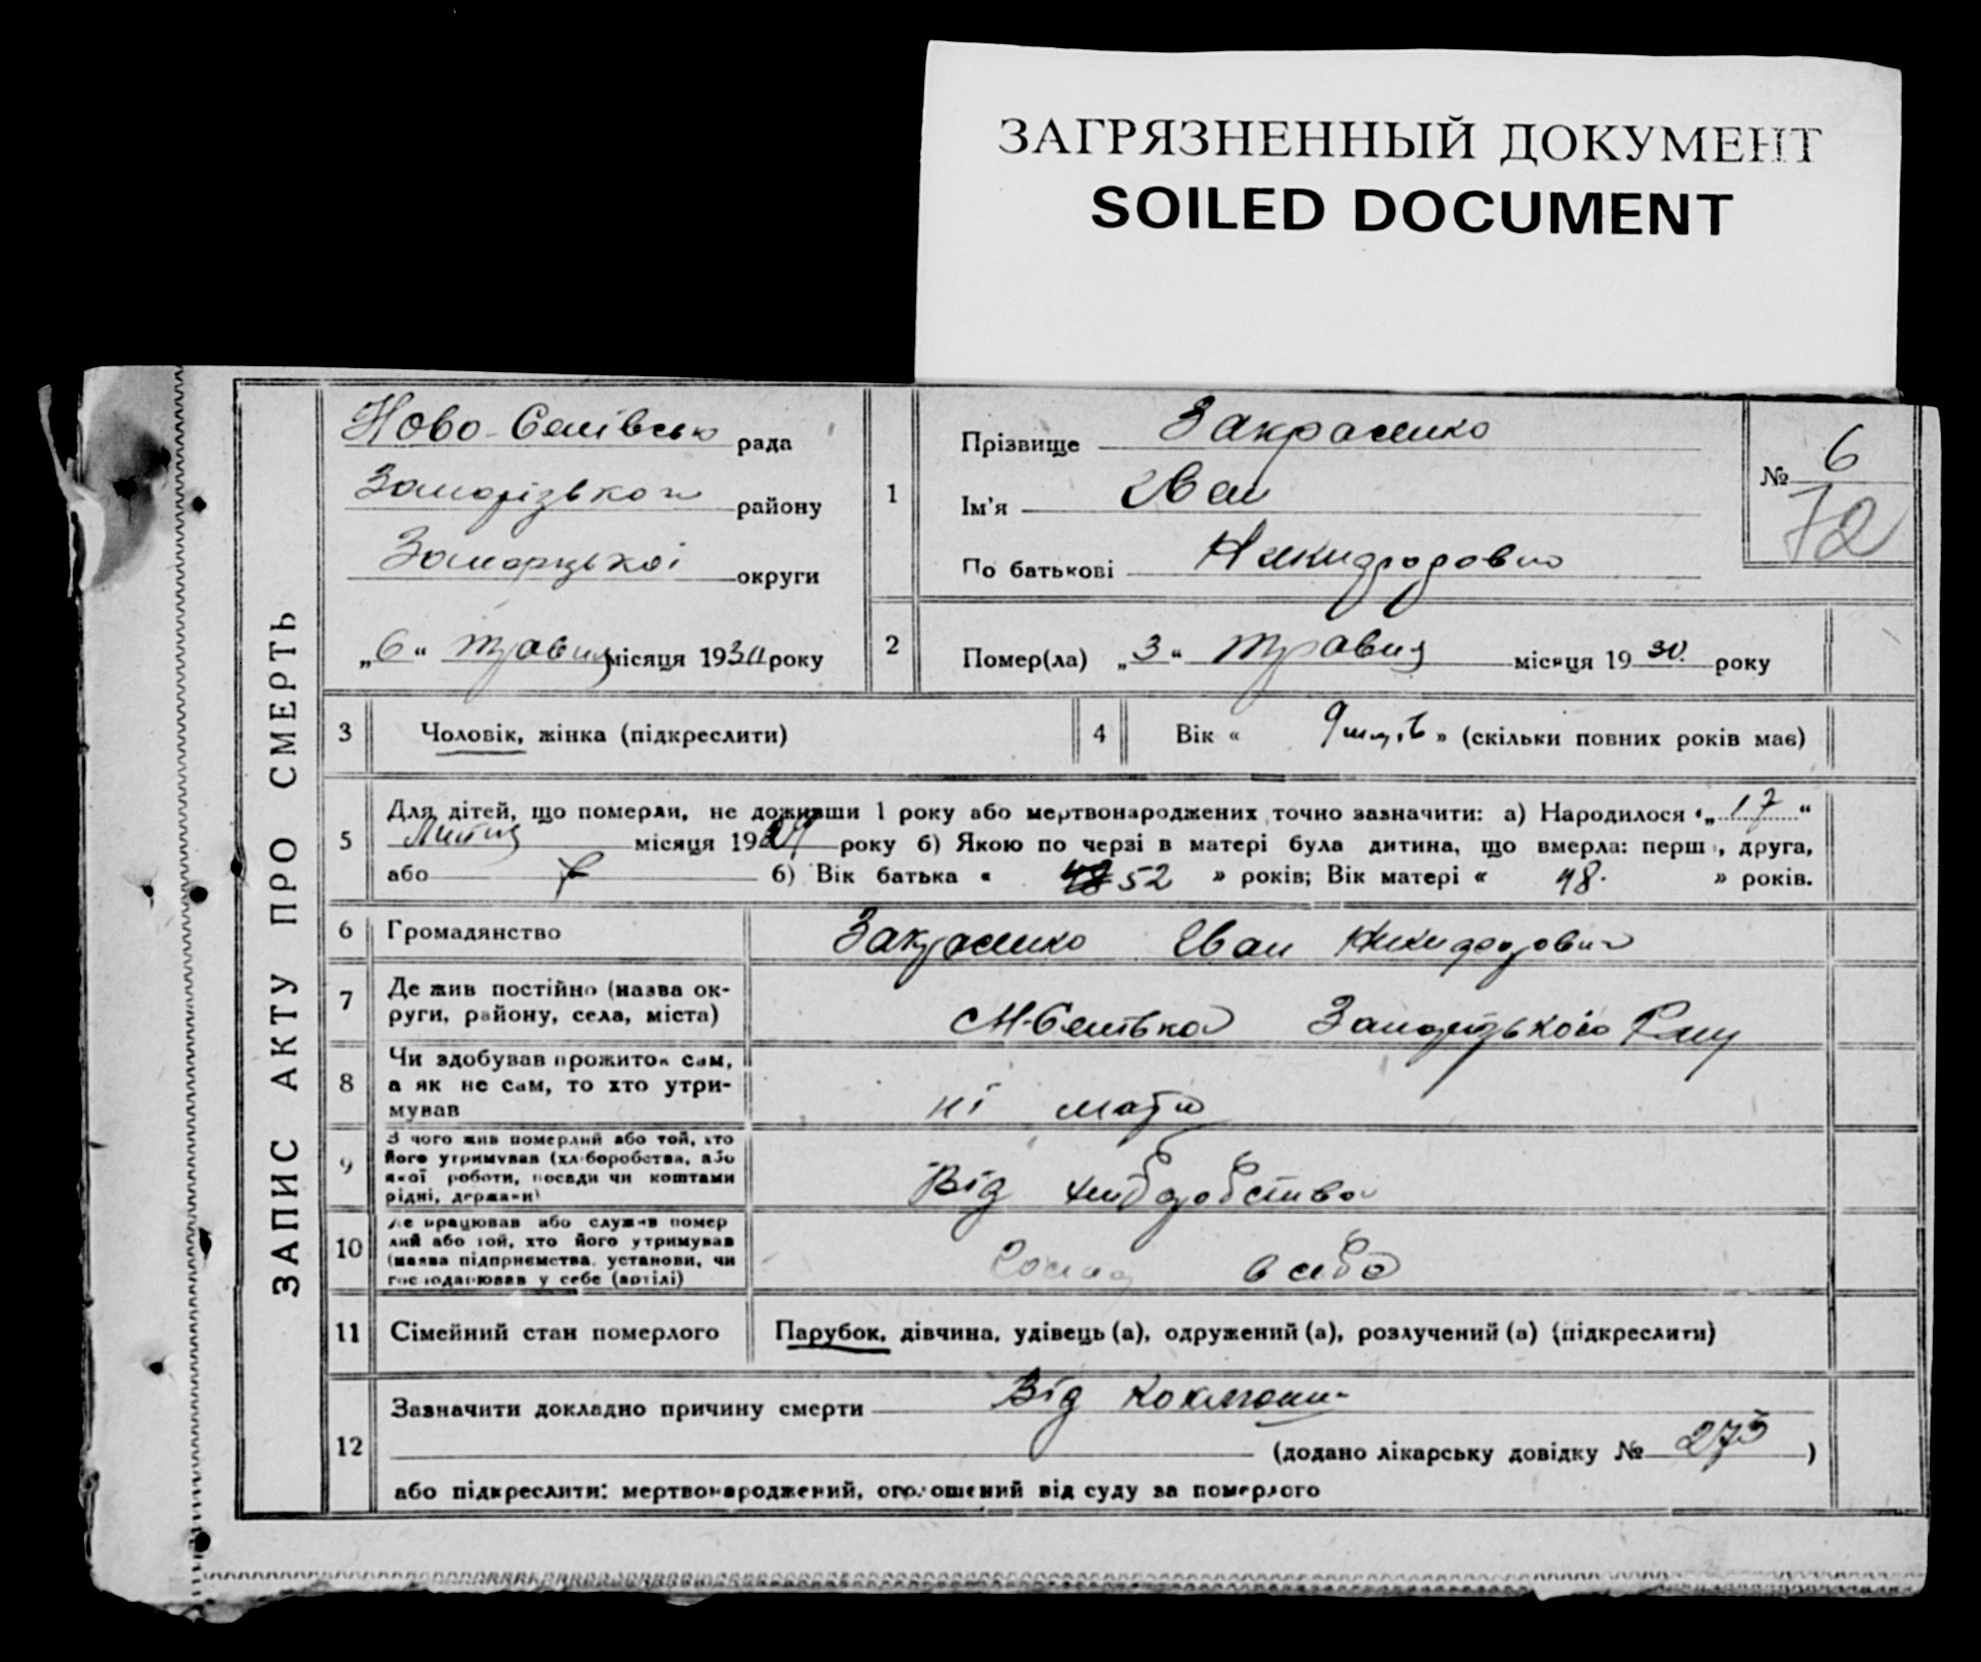 ЗАГРЯЗНЕННЫЙ ДОКУМЕНТ
SOILED DOCUMENT
ЗАПИС АКТУ ПРО СМЕРТЬ
рада
району
округи
„6“ травня місяця 1930 року
1
Прізвище
Ім'я Іван
По батькові
№ 6
72
2 Помер(ла) „3“ травня місяця 1930 року
3 Чоловік, жінка (підкреслити)
4 Вік « 9 » (скільки повних років має)
5 Для дітей, що померли, не доживши 1 року або мертвонароджених точно зазначити: а) Народилося „17“
місяця 1929 року б) Якою по черзі в матері була дитина, що вмерла: перш, друга,
або б) Вік батька « 52 » років; Вік матері « 48. » років.
6 Громадянство Іван
7 Де жив постійно (назва ок-
руги, району, села, міста)
8 Чи здобував прожиток сам,
а як не сам, то хто утри-
мував
ні мати
9 З чого жив померлий або той, хто
його утримував (хліборобства, або
якої роботи, посади чи коштами
рідні, держави)
Від хліборобства
10 Де працював або служив помер
лий або той, хто його утримував
(назва підприємства, установи, чи
господарював у себе (артілі)
в себе
11 Сімейний стан померлого Парубок, дівчина, удівець (а), одружений (а), розлучений (а) (підкреслити)
12 Зазначити докладно причину смерти Від
(додано лікарську довідку № 273)
або підкреслити: мертвонароджений, оголошений від суду за померлого